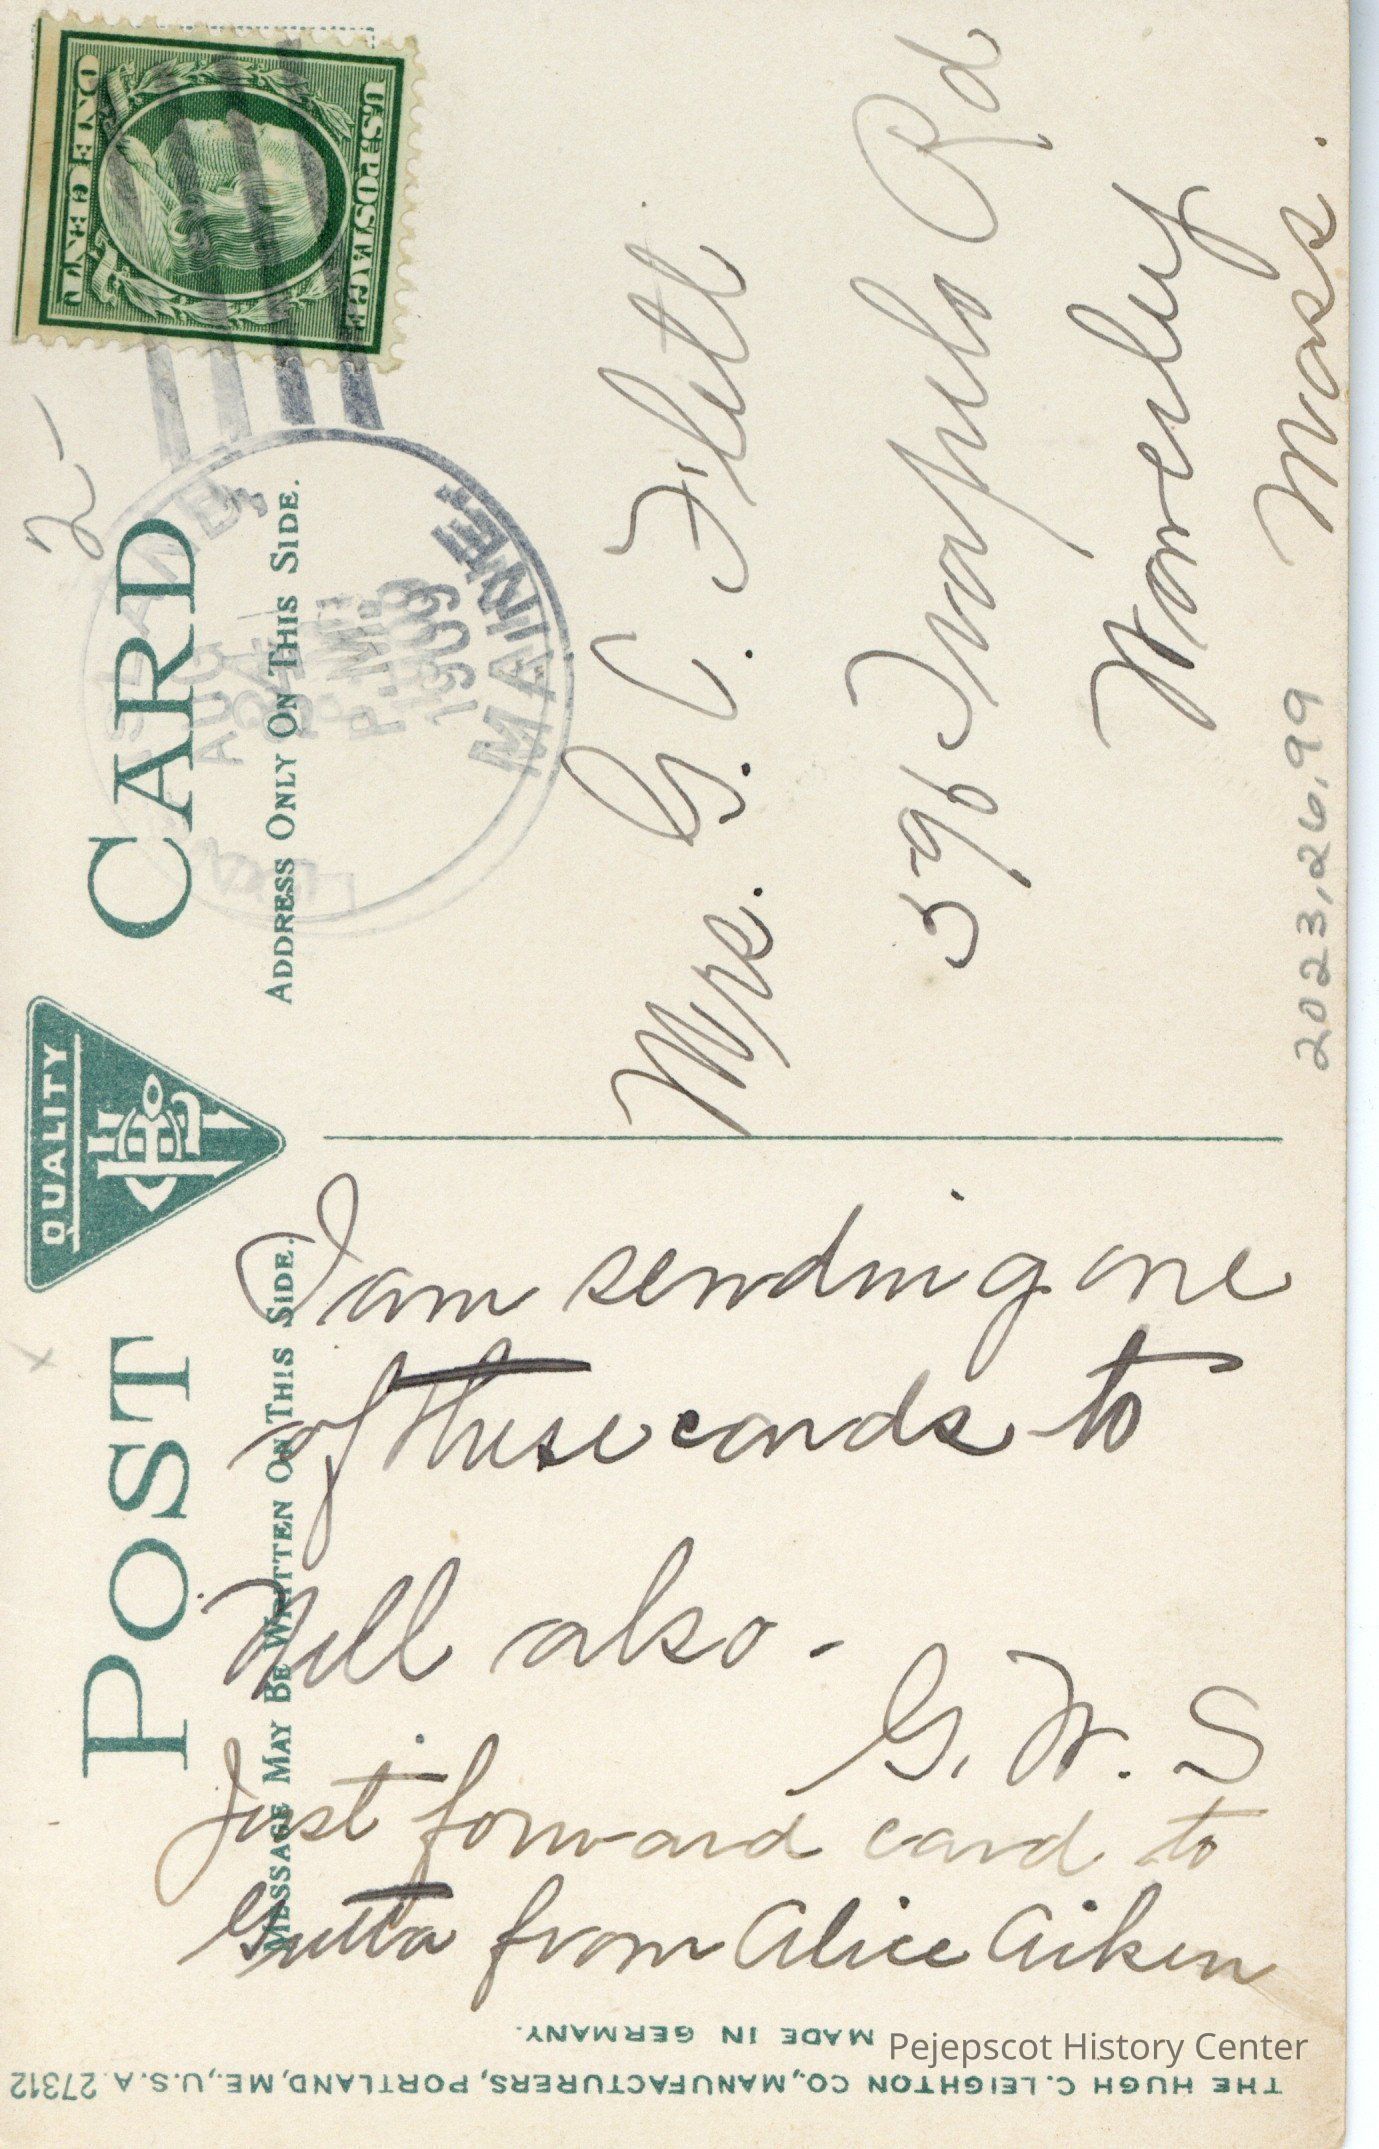 POST CARD
QUALITY
MESSAGE MAY BE WRITTEN ON THIS SIDE.
ADDRESS ONLY ON THIS SIDE.
U.S. POSTAGE
ONE CENT
2-
AUG
24
P.M.
1909
MAINE.
I am sending one
of these cards to
Nell also -
G. W. S
Just forward card to
from Alice Aiken
Mrs. G. C. Flett
596 Trapelo Rd
Waverley
Mass.
2023.26.99
THE HUGH C. LEIGHTON CO., MANUFACTURERS, PORTLAND, ME., U.S.A. 27312
MADE IN GERMANY.
Pejepscot History Center